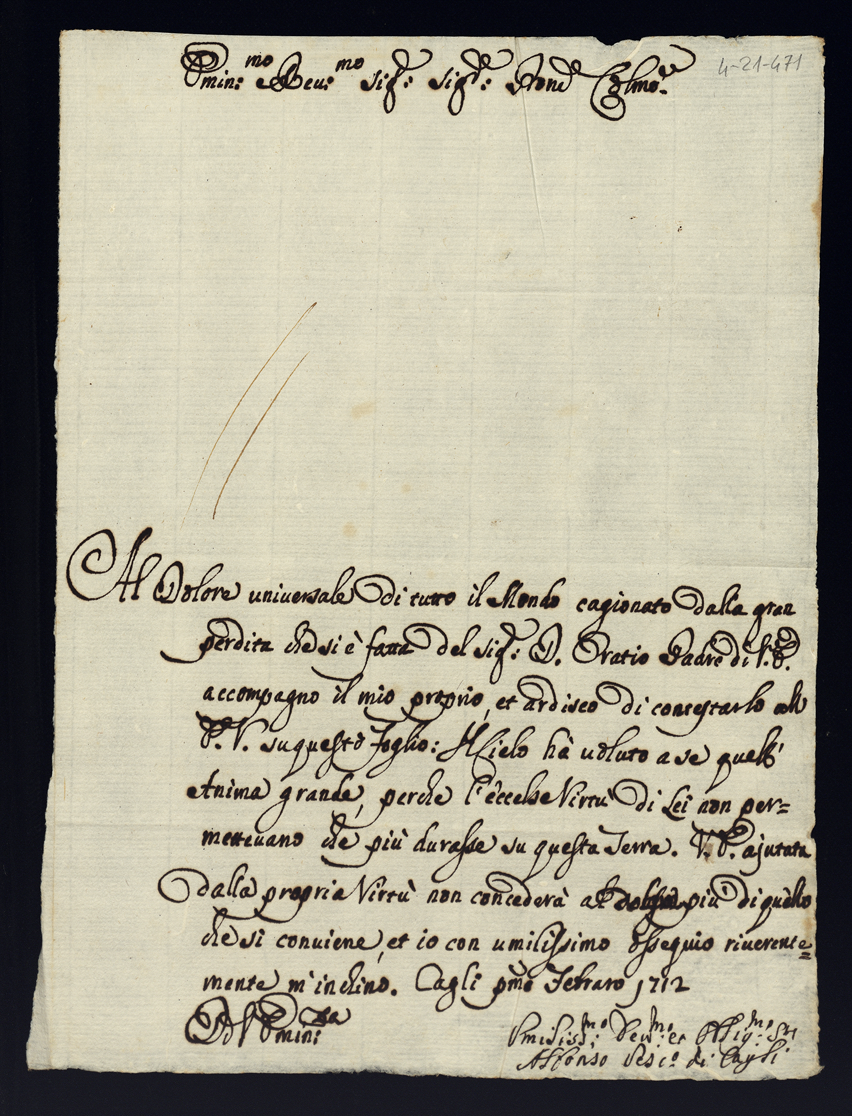 4-21-471
Emin:mo e Reu:mo Sig: Sig: Pron Colmo
Al Dolore universale di tutto il Mondo cagionato dalla gran
perdita che si è fatta del Sig: D. Oratio Padre di V. E.
accompagno il mio proprio, et ardisco di contestarlo all
E. V. su questo foglio: Il Cielo hà voluto a se quell'
Anima grande, perche l'eccelse Virtù di Lei non per=
mettevano che più durasse su questa Terra. V. E. ajutata
dalla propria Virtù non concederà al dolore più di quello
che si conviene, et io con umilissimo ossequio riverente=
mente m'inchino. Cagli pmo Febraro 1712
Di V. Emin:za
Umiliss:mo Dev:mo et Obblig:mo Sr
Alfonso Vesc:o di Cagli